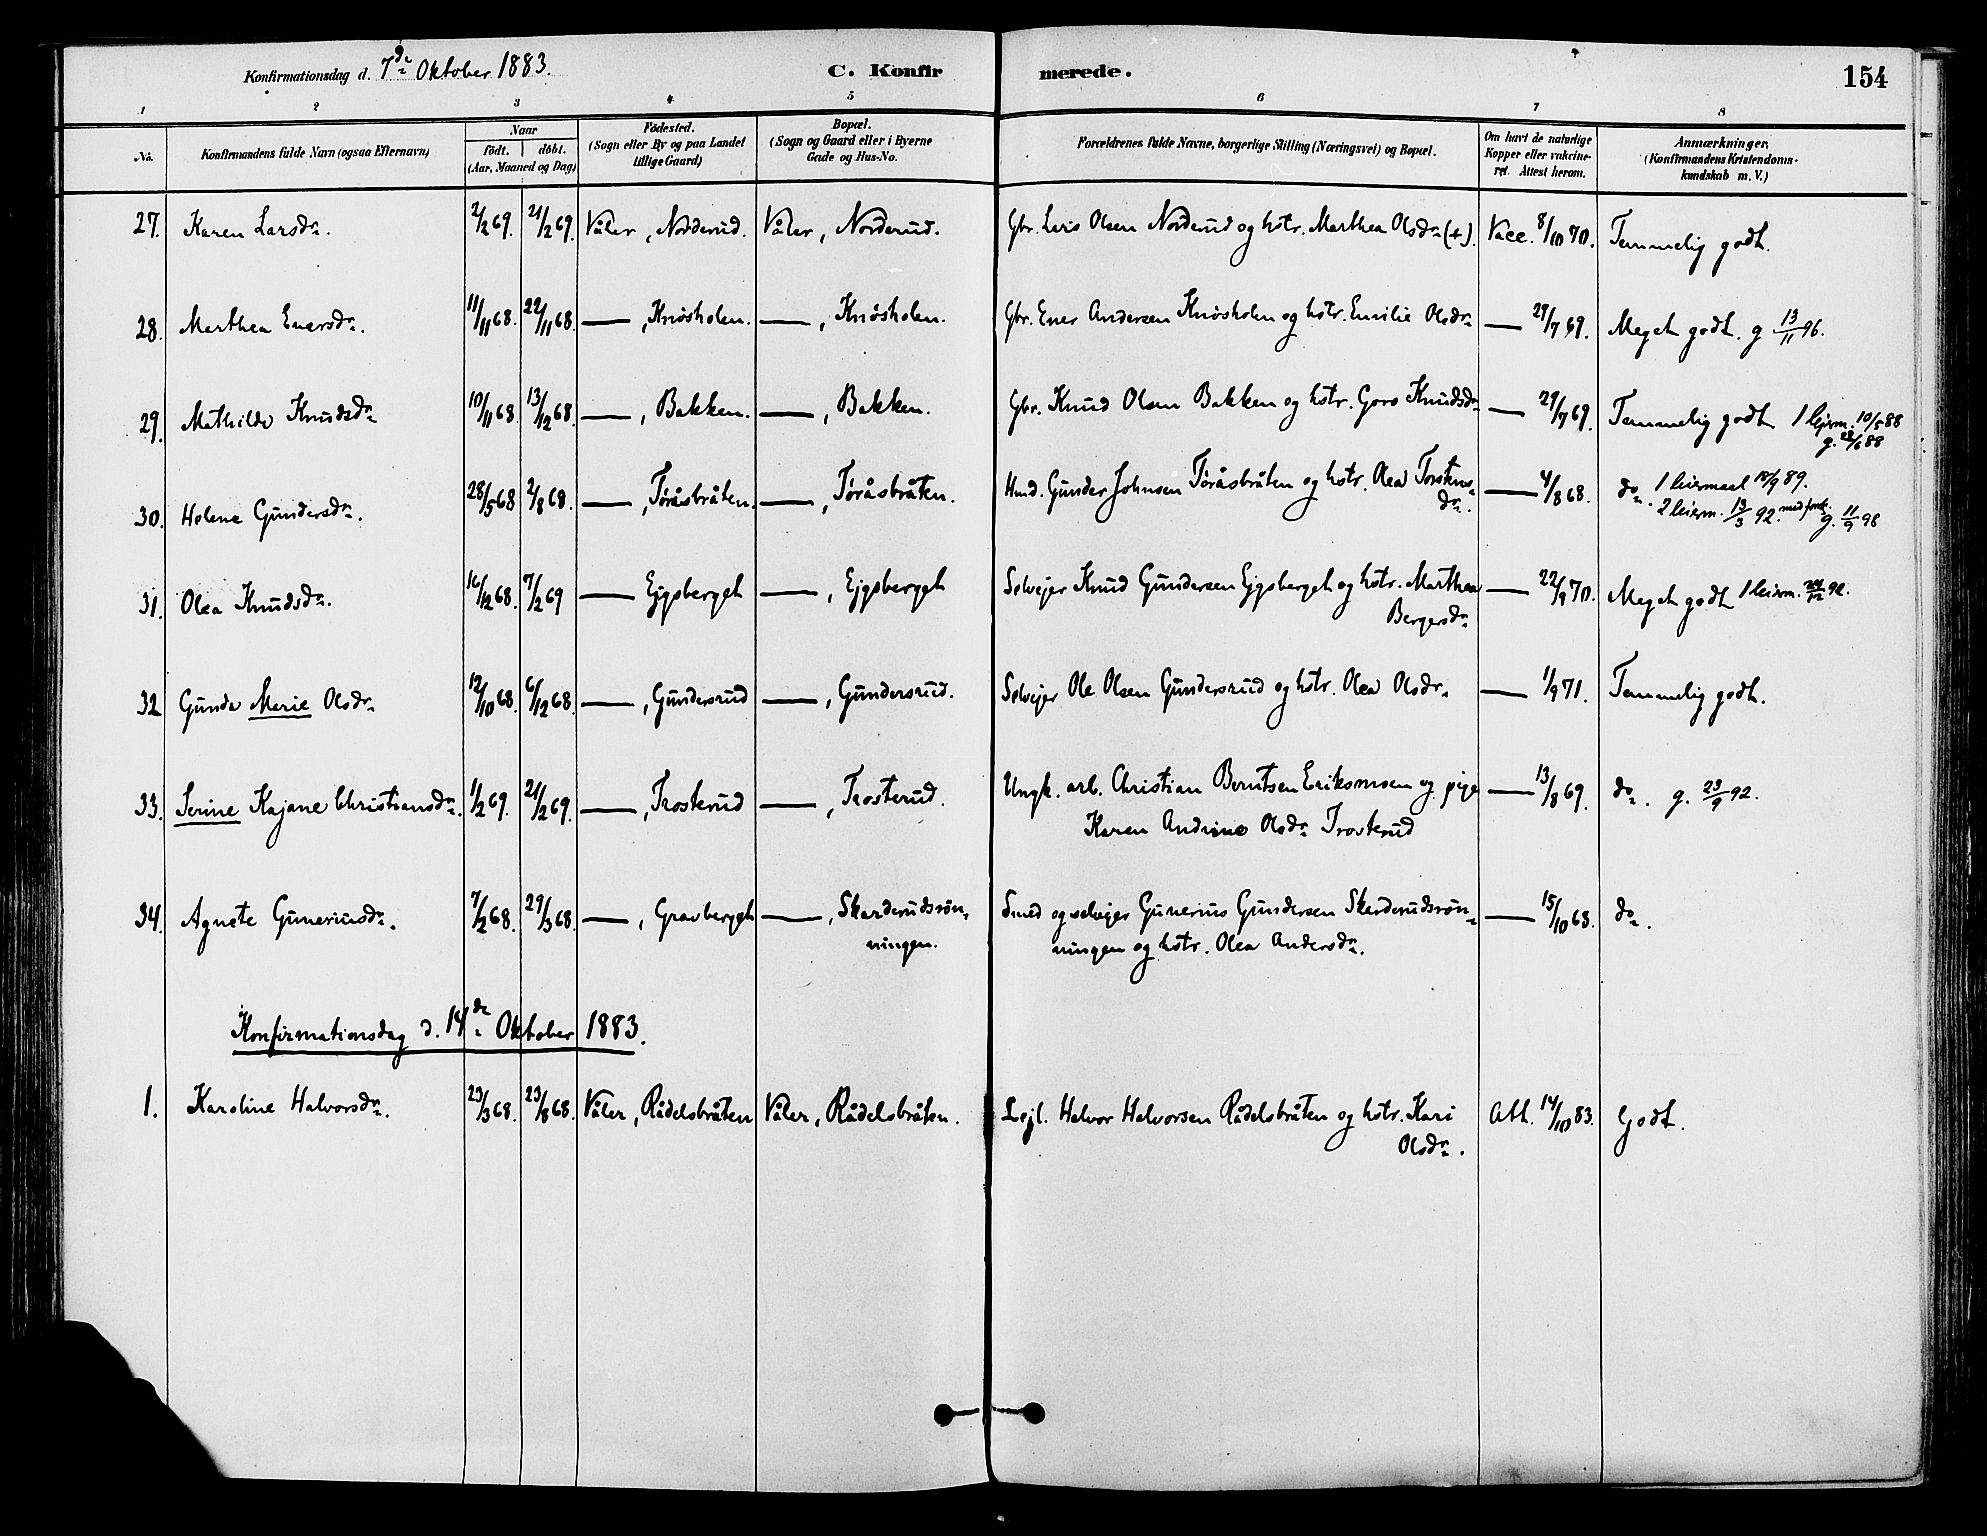 Konfirmationsdag d. 7de Oktober 1883.
C. Konfirmerede.
154
1 2 3 4 5 6 7 8
No. Konfirmandens fulde Navn (ogsaa Efternavn) Naar födt. döbt. (Aar, Maaned og Dag) Födested. (Sogn eller By og paa Landet tillige Gaard) Bopæl. (Sogn og Gaard eller i Byerne Gade og Hus-No. Forældrenes fulde Navne, borgerlige Stilling (Næringsvei) og Bopæl. Om havt de naturlige Kopper eller vakcineret. Attest herom. Anmærkninger. (Konfirmandens Kristendomskundskab m. V.)
27. Karen Larsdr. 2/2 69. 21/2 69. Våler, Norderud. Våler, Norderud. Gbr. Lars Olsen Norderud og hstr. Marthea Olsdr (+). Vacc. 8/10 70. Temmelig godt.
28. Marthea Enersdr. 11/11 68. 22/11 68. — , Knösholen. — , Knösholen. Gbr. Ener Andersen Knösholen og hstr. Emilie Olsdr — 29/7 69. Meget godt. g 13/11 96.
29. Mathilde Knudsdr 10/11 68. 13/12 68. — , Bakken. — , Bakken. Gbr. Knud Olsen Bakken og hstr. Goro Knudsdr — 29/7 69. Temmelig godt 1 leierm. 10/5 88
g. 28/6 88
30. Helene Gundersdr. 28/5 68 2/8 68. — , Töråsbråten. — , Töråsbråten. Hmd. Gunder Johnsen Töråsbråten og hstr. Olea Torstens- — 4/8 68. do. 1 leiermaal 18/9 89.
dr. 2 leierm. 13/3 92. med fork. g. 11/9 98
31. Olea Knudsdr. 16/12 68. 7/2 69 — Ejgsberget — , Ejgsberget Selvejer Knud Gundersen Ejgsberget og hstr. Marthea — 22/9 70. Meget godt 1 leierm. 24/12 92.
Bergersdr
32 Gunda Marie Olsdr 12/10 68. 6/12 68. — , Gundersrud — , Gundersrud. Selvejer Ole Olsen Gundersrud og hstr. Olea Olsdr — 1/9 71. Temmelig godt.
33. Serine Kajane Christiansdr. 1/2 69. 21/2 69. — , Trosterud — , Trosterud. Ungk. arb. Christian Berntsen Eriksmoen og pige — 13/8 69. do. g. 23/9 92.
Karen Andrine Olsdr Trosterud
34. Agnete Guneriusdr. 7/2 68. 29/3 68. — , Gravberget — , Skarderudsrön- Smed og selvejer Gunerius Gundersen Skarderudsrön- — 15/10 68. do.
ningen. ningen og hstr. Olea Andersdr.
Konfirmationsdag d. 14de Oktober 1883.
1. Karoline Halvorsdr. 23/3 68. 23/8 68. Våler, Rådelsbråten Våler, Rådelsbråten. Lejl. Halvor Halvorsen Rådelsbråten og hstr. Kari Att. 14/10 83. Godt.
Olsdr.